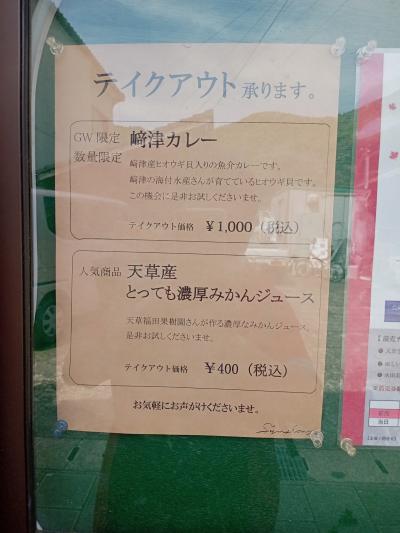 テイクアウト承ります。
GW限定
数量限定
﨑津カレー
﨑津産ヒオウギ貝入りの魚介カレーです。
﨑津の海付水産さんが育てているヒオウギ貝です。
この機会に是非お試しくださいませ。
テイクアウト価格 ￥1,000（税込）
人気商品
天草産
とっても濃厚みかんジュース
天草福田果樹園さんが作る濃厚なみかんジュース。
是非お試しくださいませ。
テイクアウト価格 ￥400（税込）
お気軽にお声がけくださいませ。